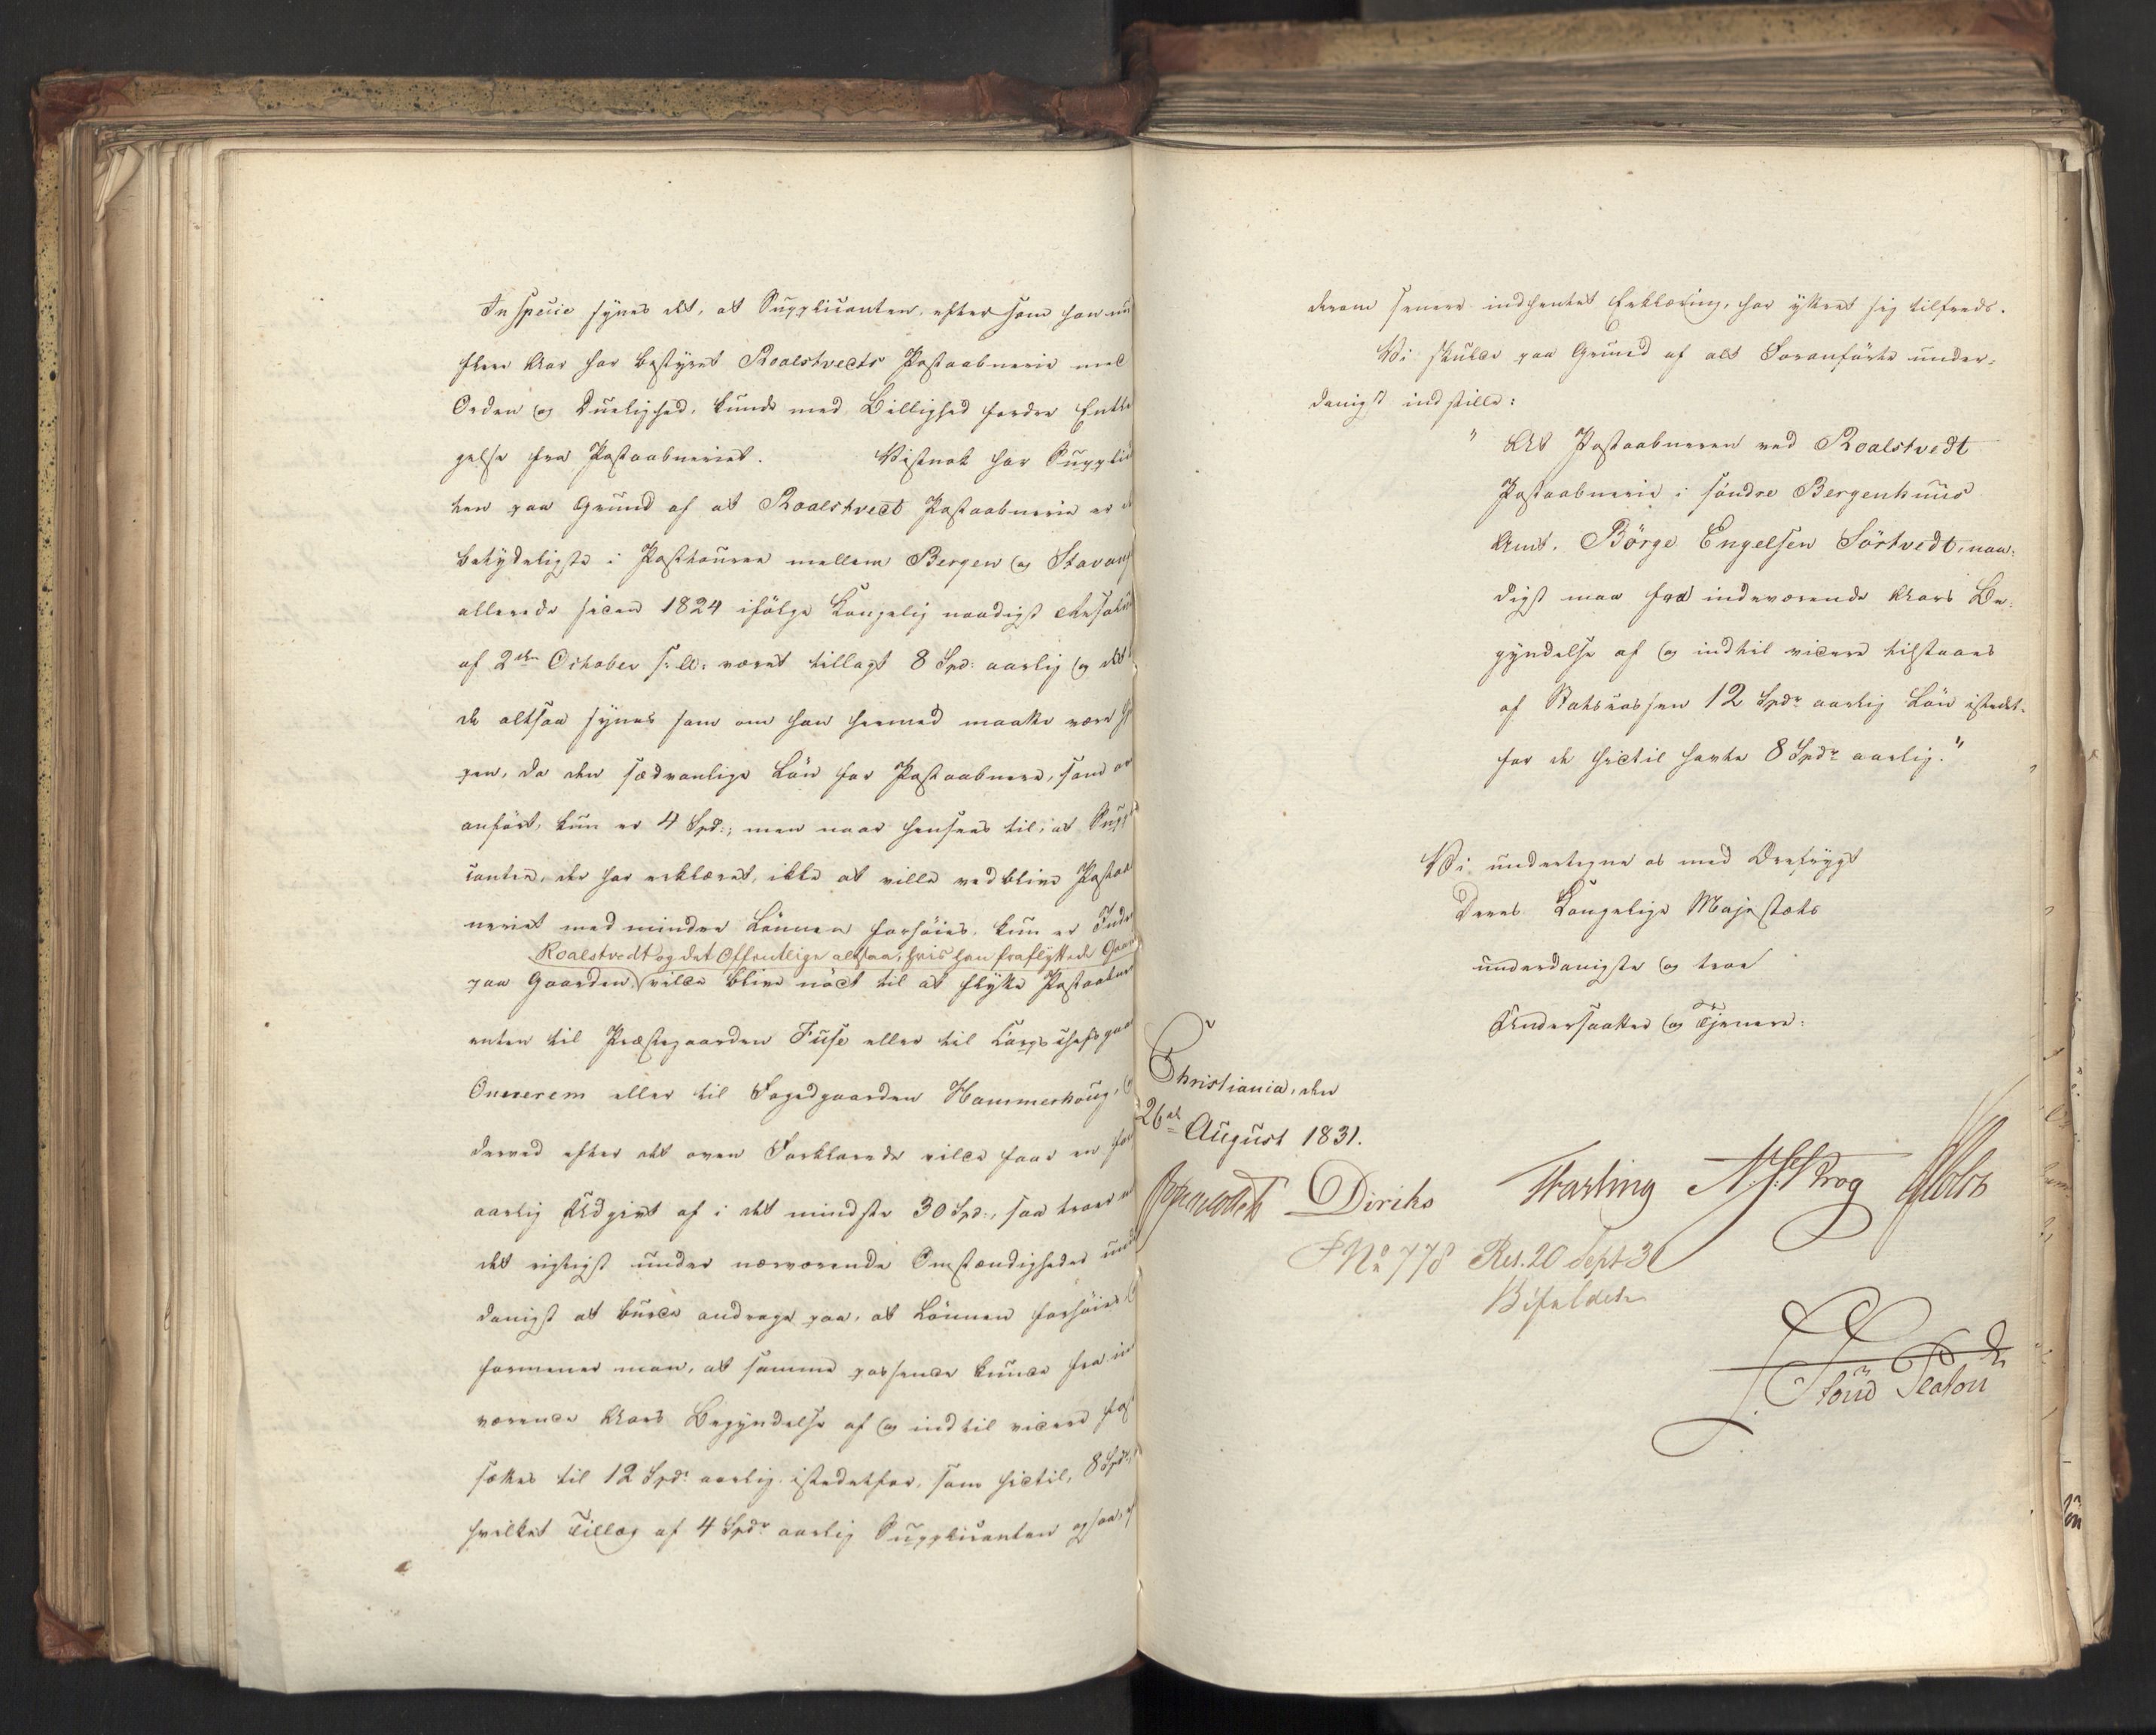 In specie synes det, at Supplicanten, eftersom han nu
flere Aar har bestyret Roalstvedts Postaabnerie med
Orden og Duelighed, kunde med Billighed fordre Entle
gelse fra Postaabneriet. Vistnok har Supplic
ten paa Grund af at Roalstvedt Postaabnerie er
betydeligste i Posttouren mellem Bergen og Stavang
allerede siden 1824 ifölge Kongelig naadigst Resolu
af 2den October s: A: været tillagt 8 Spd: aarlig og det
de altsaa synes som om han hermed maatte være
gen, da den sædvanlige Lön for Postaabnere, som
anfört, kun er 4 Spd:; men naar hensees til, at Supp
canten, der har erklæret, ikke at ville vedblive Postaab
neriet med mindre Lönnen forhöies, kun er Inde
Roalstvedt og det Offentlige altsaa, hvis han fraflyttede Gaar
paa Gaarden, vilde blive nödt til at flytte Postaabne
enten til Præstegaarden Fuse eller til Corpschefsgaar
Onererem eller til Fogedgaarden Hammerhoug,
derved efter det oven Forklarede vilde faae en
aarlig Udgivt af i det mindste 30 Spd:, saa troer
det rigtigst under nærværende Omstændigheder und
danigst at burde andrage paa, at Lönnen forhöies
formener man, at samme passende kunde fra in
værende Aars Begyndelse af og indtil videre fast
sættes til 12 Spdr aarlig istedetfor, som hidtil, 8 Spdr,
hvilket Tillæg af 4 Spdr aarlig Supplicanten ogsaa,
derom senere indhentet Erklæring, har yttret sig tilfreds.
Vi skulde paa Grund af alt Foranförte under-
danigst indstille:
" At Postaabneren ved Roalstvedt
Postaabnerie i söndre Bergenhuus
Amt, Börge Engelsen Sörtvedt, naa-
digst maa fra indeværende Aars Be-
gyndelse af og indtil videre tilstaaes
af Statskassen 12 Spdr aarlig Lön istedet-
for de hidtil havte 8 Spdr aarlig."
Vi undertegne os med Ærefrygt
Deres Kongelige Majestæts
underdanigste og troe
Undersaatter og Tjenere:
Christiania, den
26de August 1831.
Diriks N. J. Krog
No 778 Res. 20 Sept 31
Bifaldet